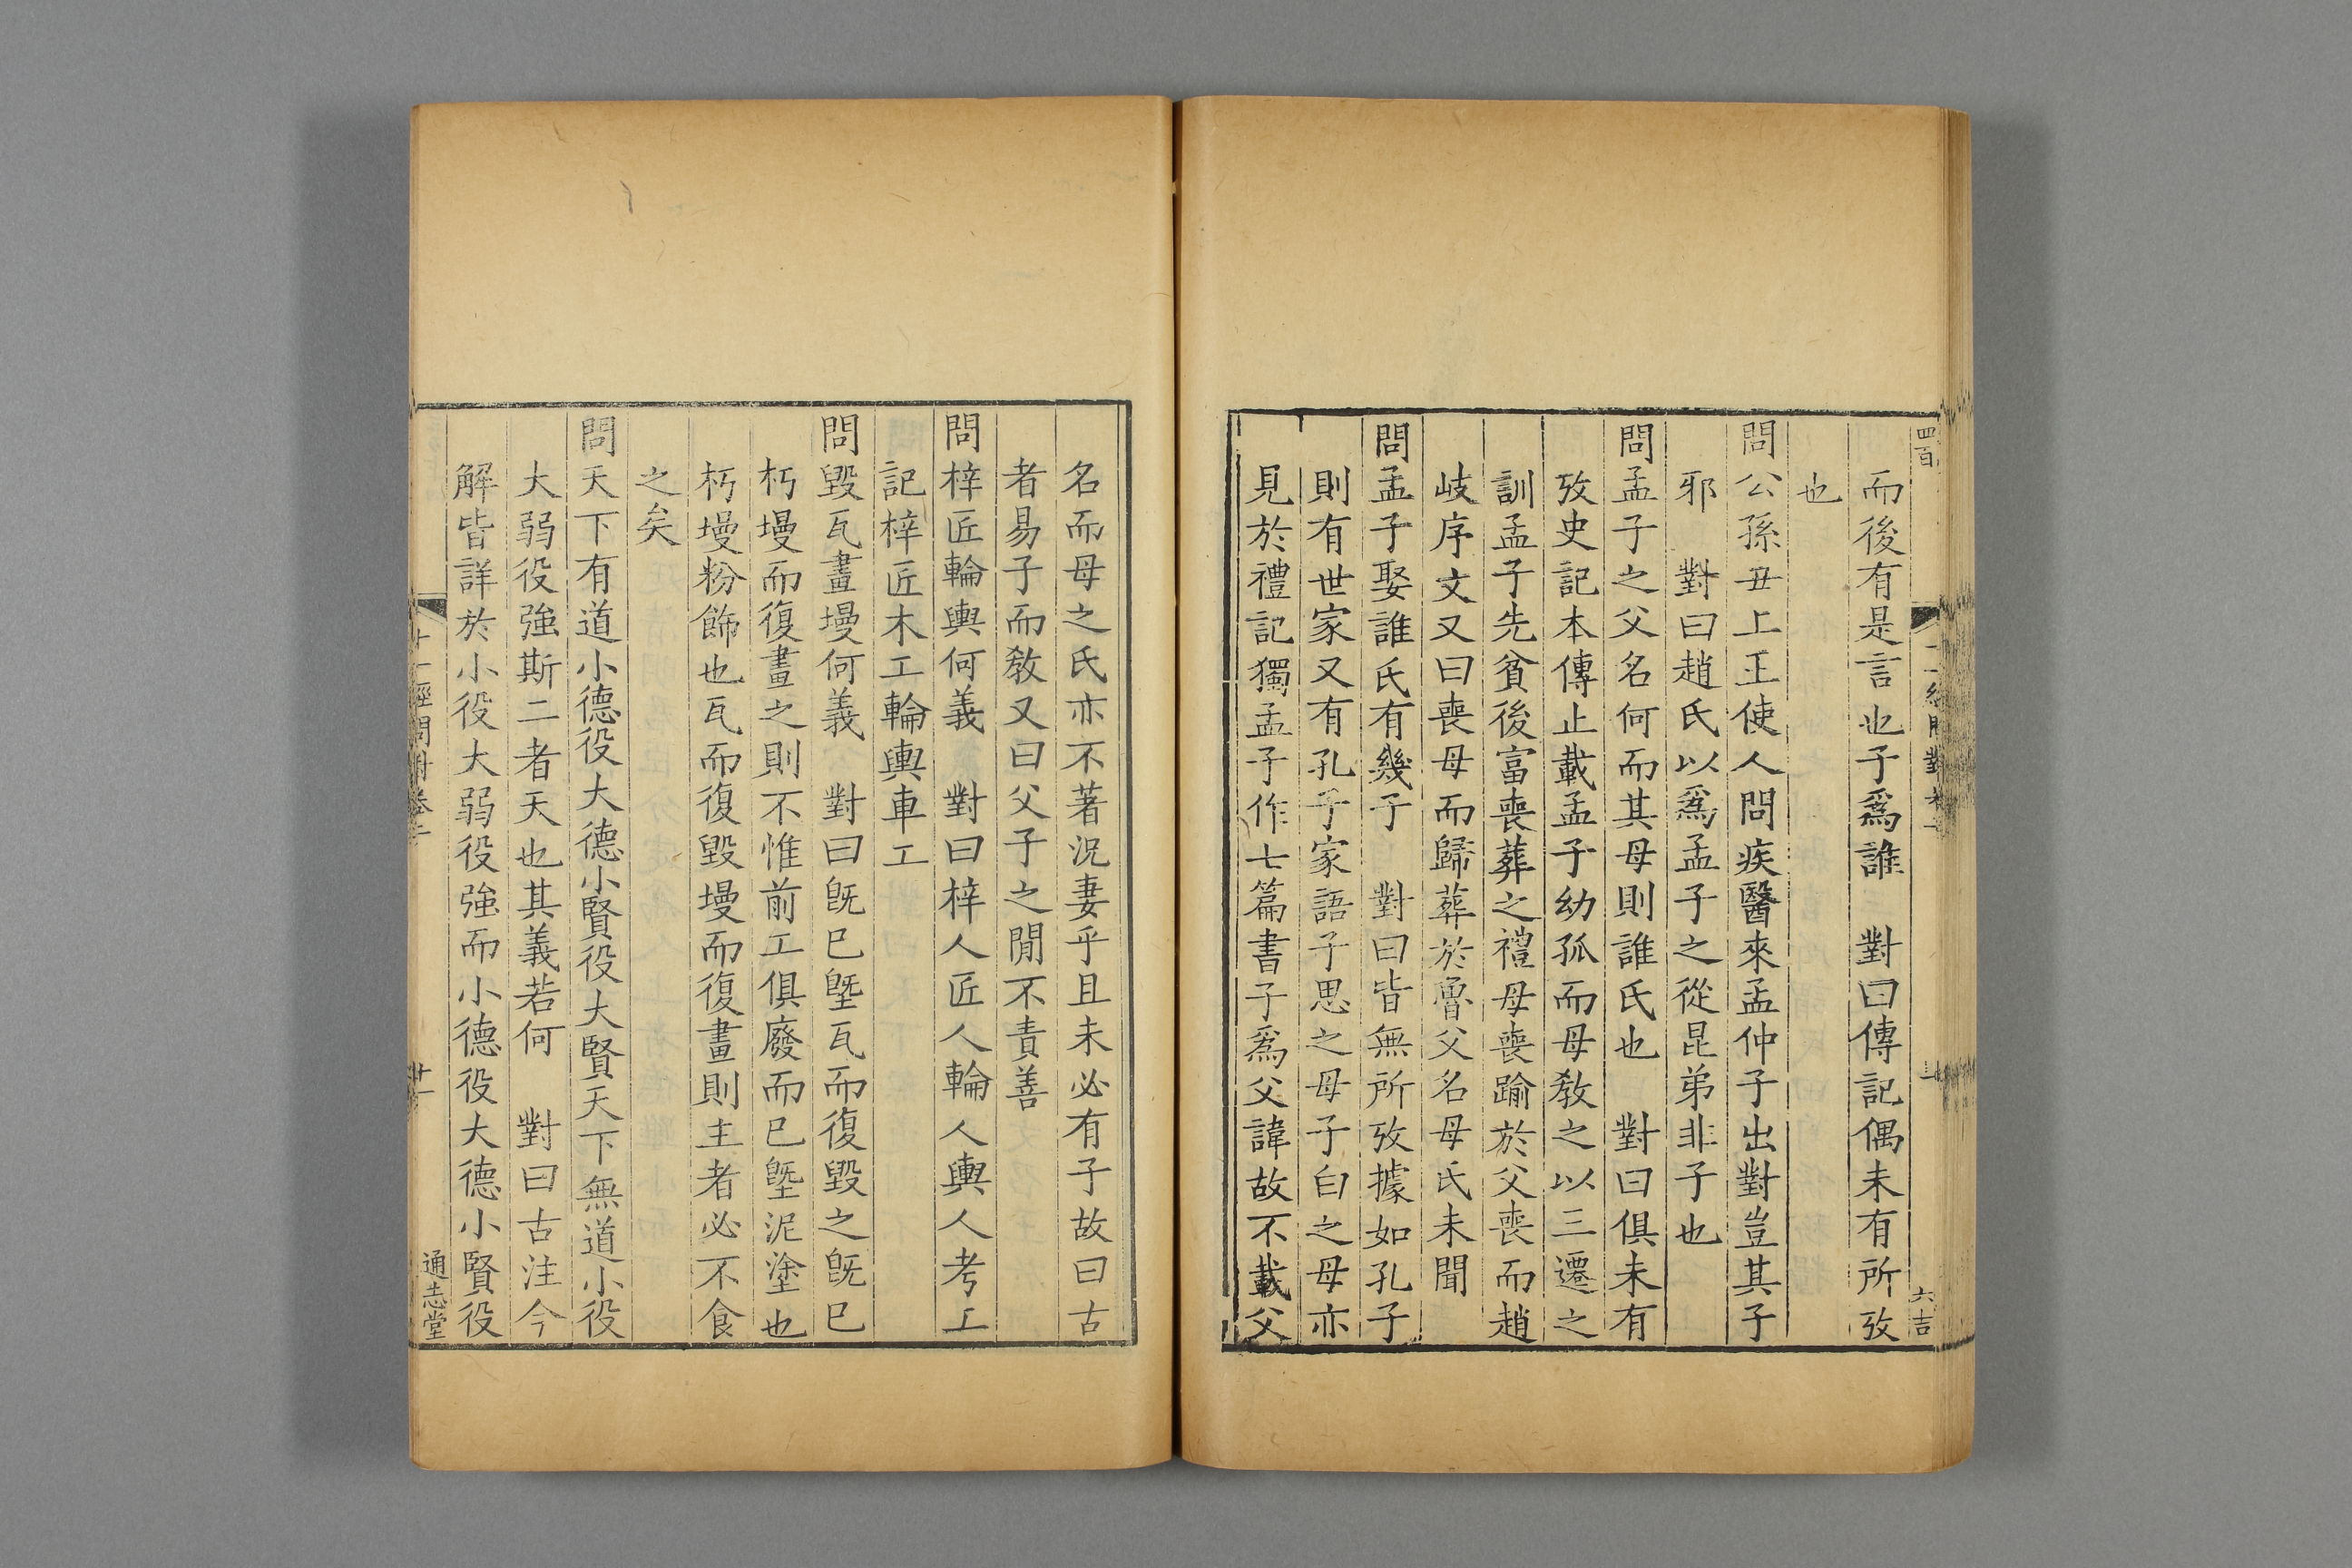 四百
六吉
而後有是言也子爲誰　對曰傳記偶未有所攷
也
問公孫丑上王使人問疾醫來孟仲子出對豈其子
邪　對曰趙氏以爲孟子之從昆弟非子也
問孟子之父名何而其母則誰氏也　對曰俱未有
攷史記本傳止載孟子幼孤而母敎之以三遷之
訓孟子先貧後富喪葬之禮母喪踰於父喪而趙
岐序文又曰喪母而歸葬於魯父名母氏未聞
問孟子娶誰氏有幾子　對曰皆無所攷據如孔子
則有世家又有孔子家語子思之母子白之母亦
見於禮記獨孟子作七篇書子爲父諱故不載父
名而母之氏亦不著況妻乎且未必有子故曰古
者易子而敎又曰父子之閒不責善
問梓匠輪輿何義　對曰梓人匠人輪人輿人考工
記梓匠木工輪輿車工
問毀瓦畫墁何義　對曰旣已墍瓦而復毀之旣已
杇墁而復畫之則不惟前工俱廢而已墍泥塗也
杇墁粉飾也瓦而復毀墁而復畫則主者必不食
之矣
問天下有道小德役大德小賢役大賢天下無道小役
大弱役強斯二者天也其義若何　對曰古注今
解皆詳於小役大弱役強而小德役大德小賢役
十一經問對卷二
十一
通志堂